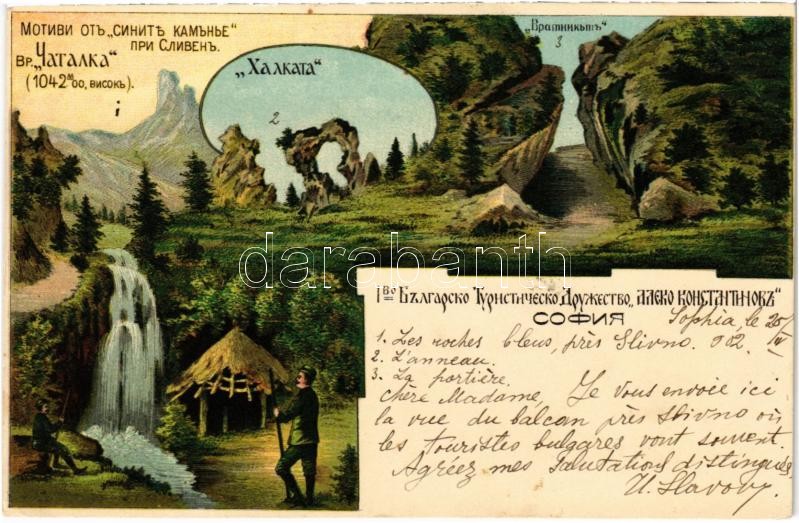 Мотиви отъ „Сините камъне“
при Сливенъ.
Вр. „Чаталка“
(1042 м 00, високъ).
1
„Халката“
2
„Вратникътъ“
3
darabanth
I во Българско Туристическо Дружество „Алеко Константиновъ“
София
Sophia, le 25/V
1. Les roches bleus, près Slivno. 902.
2. L'anneau.
3. La portière.
Chère Madame, Je vous envoie ici
la vue du balcan près Slivno où
les touristes bulgares vont souvent.
Agréez mes salutations distinguées
Slavov